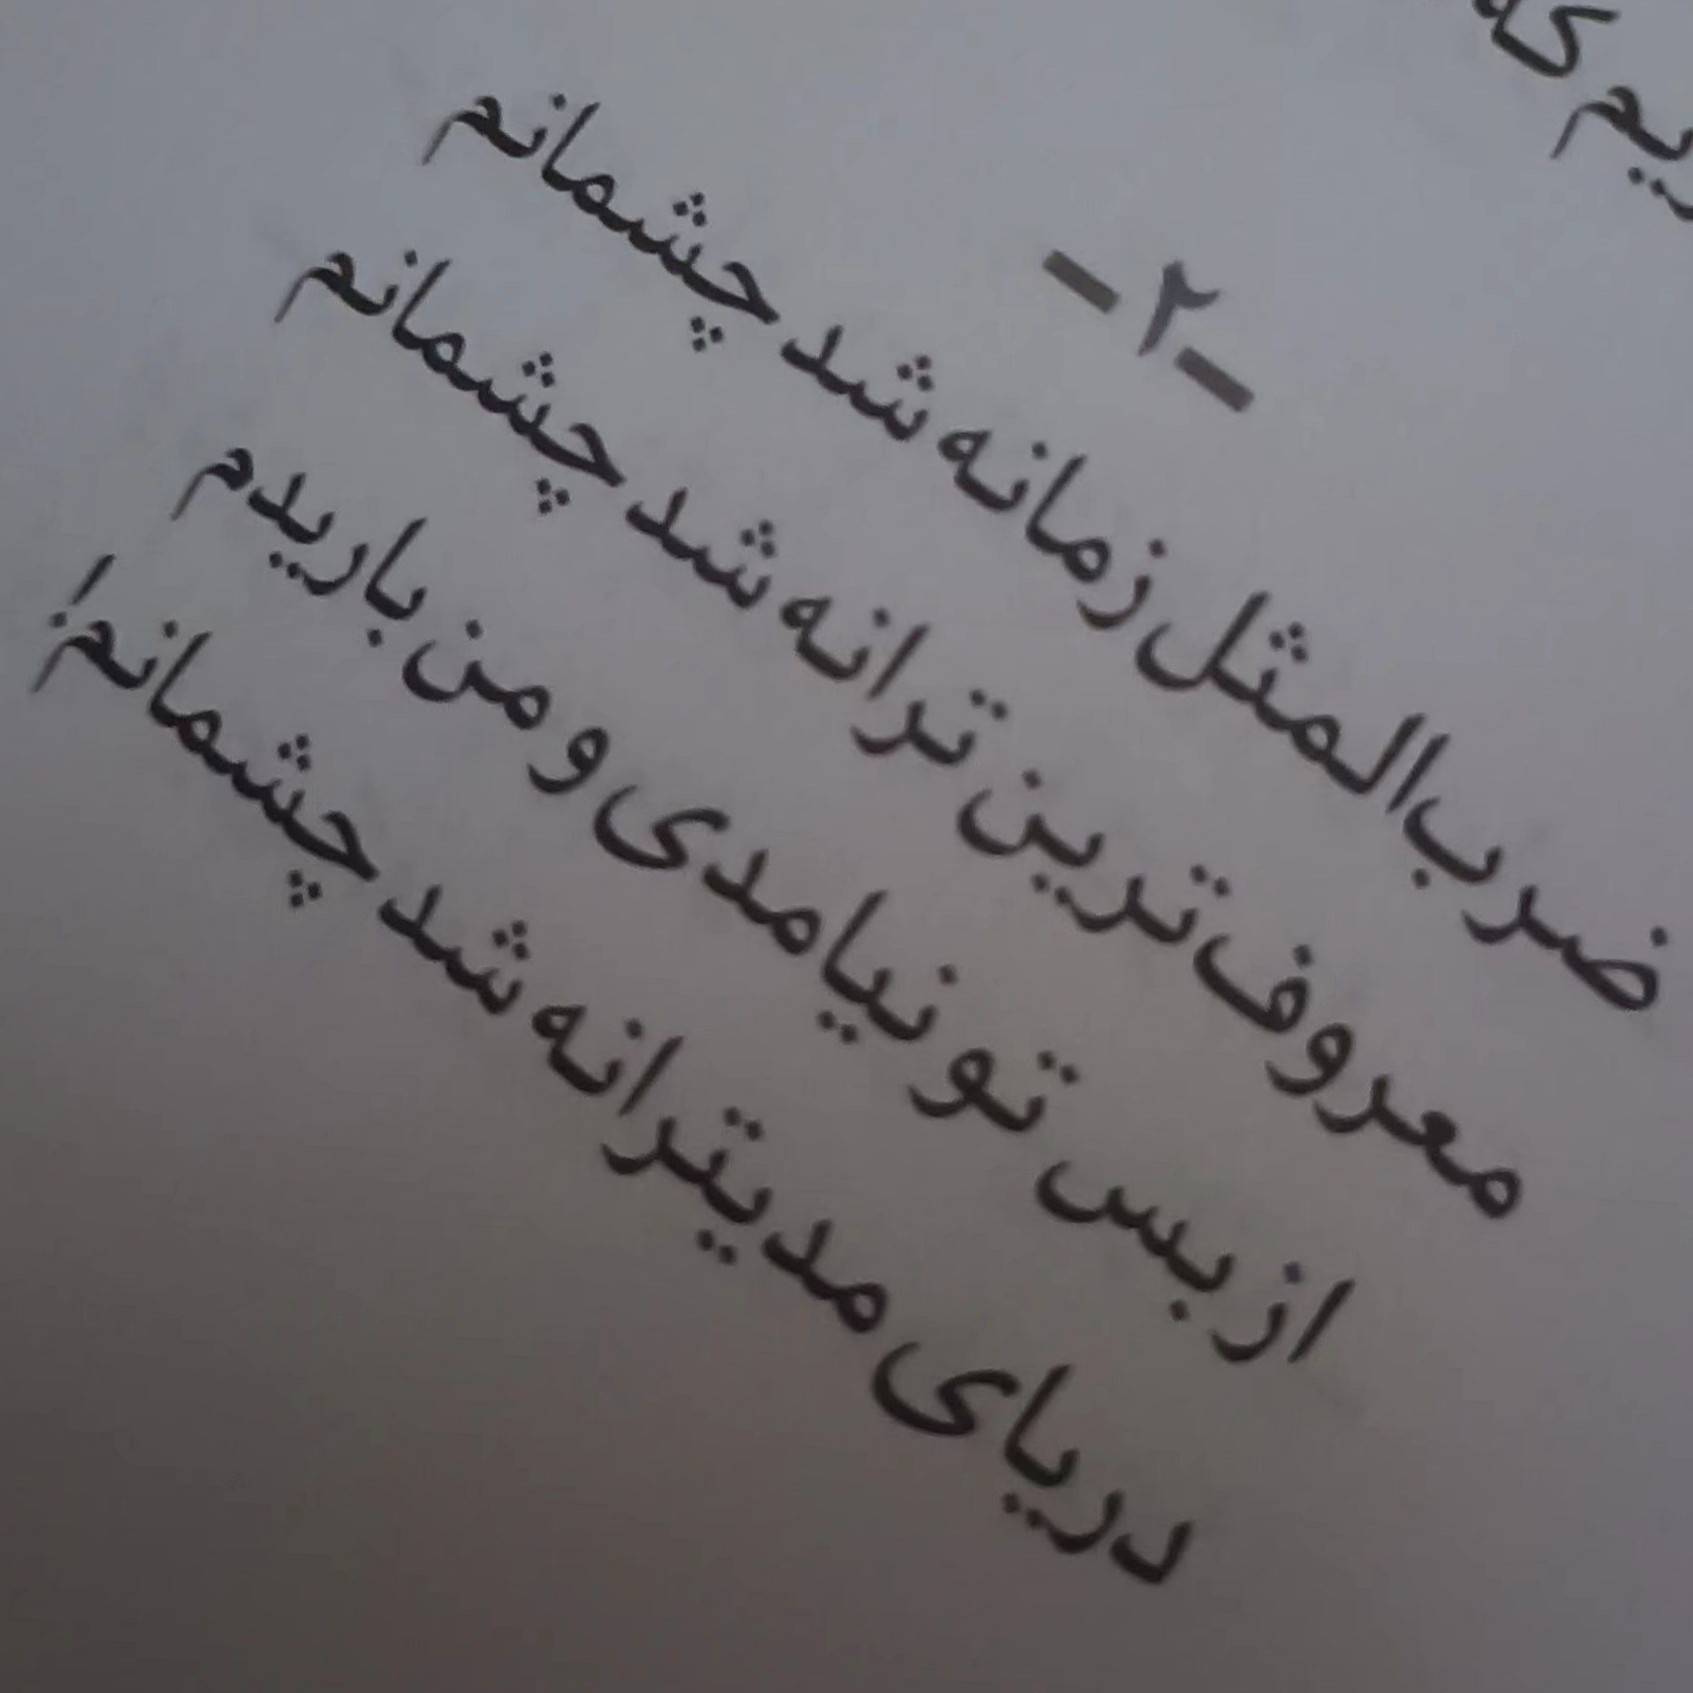 -۲-
ضرب‌المثل زمانه شد چشمانم
معروف‌ترین ترانه شد چشمانم
از بس تو نیامدی و من باریدم
دریای مدیترانه شد چشمانم!